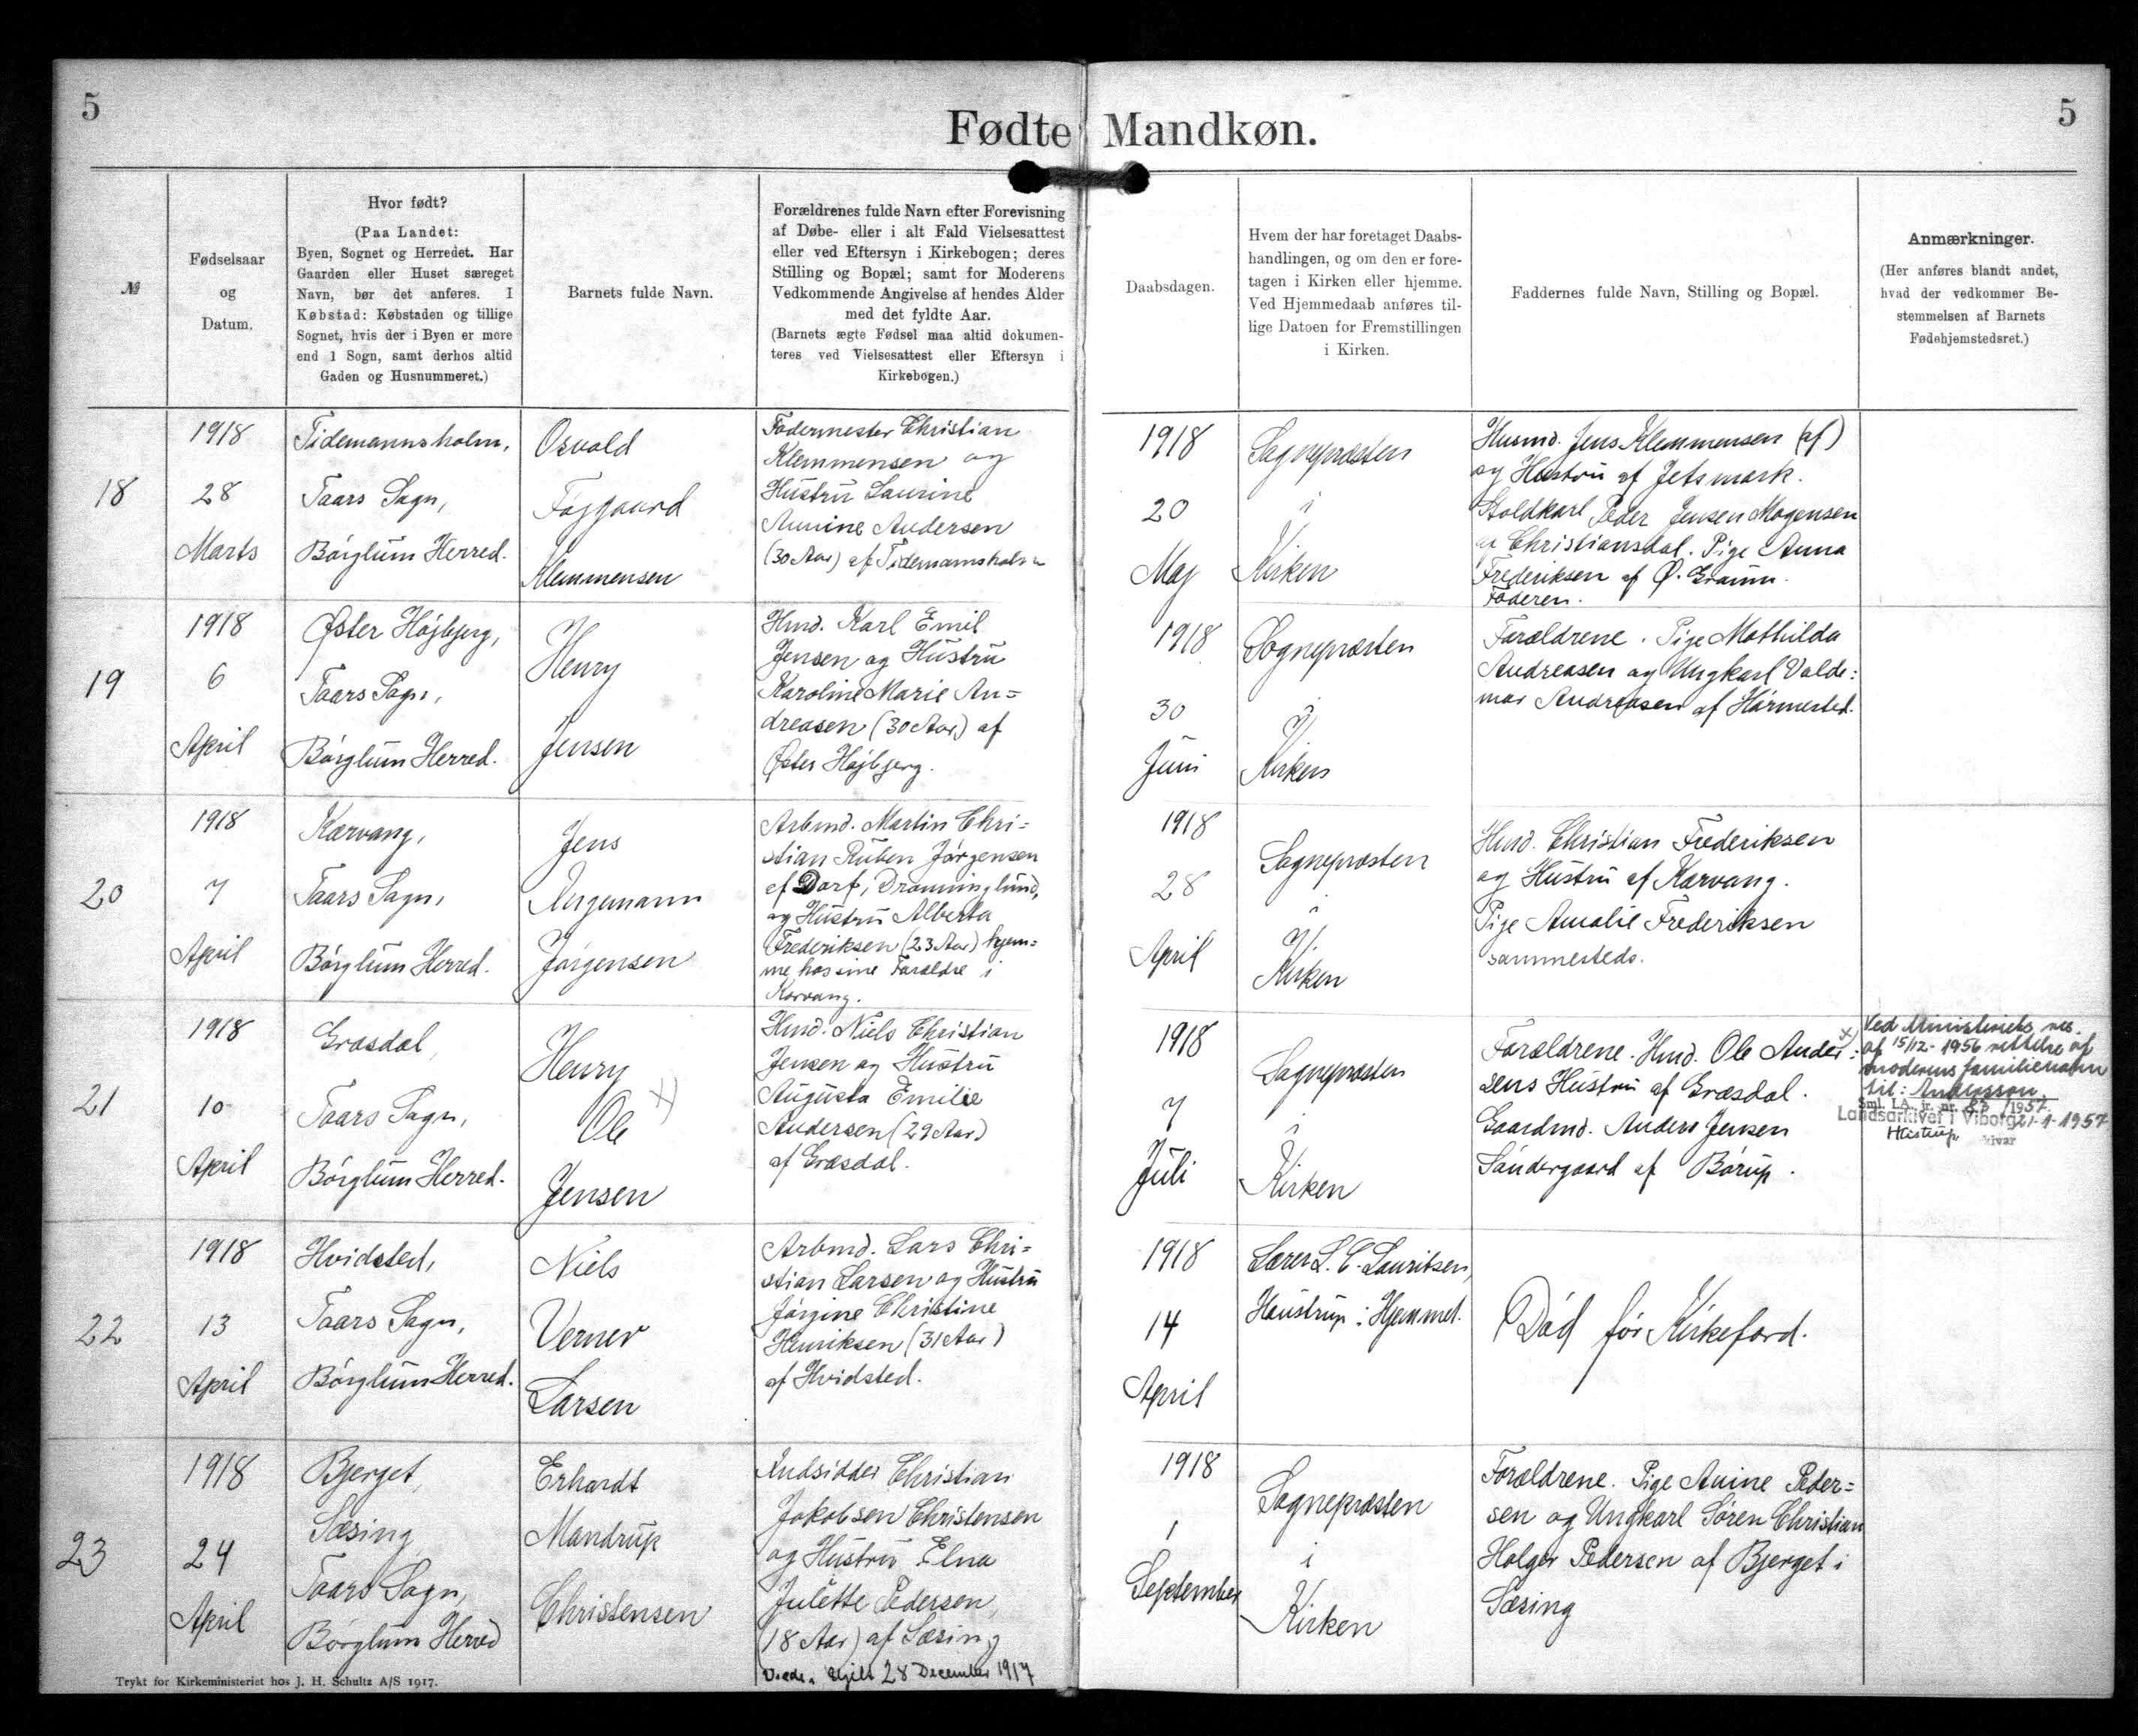 5
5
Fødte Mandkøn.
№
Fødselsaar
og
Datum.
Hvor født?
(Paa Landet:
Byen, Sognet og Herredet. Har
Gaarden eller Huset særeget
Navn, bør det anføres. I
Købstad: Købstaden og tillige
Sognet, hvis der i Byen er mere
end 1 Sogn, samt derhos altid
Gaden og Husnummeret.)
Barnets fulde Navn.
Forældrenes fulde Navn efter Forevisning
af Døbe- eller i alt Fald Vielsesattest
eller ved Eftersyn i Kirkebogen; deres
Stilling og Bopæl; samt for Moderens
Vedkommende Angivelse af hendes Alder
med det fyldte Aar.
(Barnets ægte Fødsel maa altid dokumen-
teres ved Vielsesattest eller Eftersyn i
Kirkebogen.)
Daabsdagen.
Hvem der har foretaget Daabs-
handlingen, og om den er fore-
tagen i Kirken eller hjemme.
Ved Hjemmedaab anføres til-
lige Datoen for Fremstillingen
i Kirken.
Faddernes fulde Navn, Stilling og Bopæl.
Anmærkninger.
(Her anføres blandt andet,
hvad der vedkommer Be-
stemmelsen af Barnets
Fødehjemstedsret.)
18
1918
28
Marts
Tidemannsholm,
Taars Sogn,
Börglum Herred.
Osvald
Föggaard
Klemmensen
Fodermester Christian
Klemmensen og
Hustru Laurine
Annine Andersen
(30 Aar) af Tidemannsholm
1918
20
Maj
Sognepræsten
i
Kirken
Husmd. Jens Klemmensen (af)
og Hustru af Jetsmark.
Staldkarl Peder Jensen Mogensen
af Christiansdal. Pige Anna
Frederiksen af Ø.
Faderen.
19
1918
6
April
Øster Højbjerg,
Taars Sogn,
Börglum Herred.
Henry
Jensen
Hmd. Karl Emil
Jensen og Hustru
Karoline Marie An=
dreasen (30 Aar) af
Øster Højbjerg.
1918
30
Juni
Sognepræsten
i
Kirken
Forældrene. Pige Mathilda
Andreasen og Ungkarl Valde=
mar Andreasen af Hörmested.
20
1918
7
April
Kærvang,
Taars Sogn,
Börglum Herred.
Jens
Jörgensen
Arbmd. Martin Chri=
stian Ruben Jörgensen
af Dorf, Dronninglund,
og Hustru Alberta
Frederiksen (23 Aar) hjem=
me hos sine Forældre i
Kærvang.
1918
28
April
Sognepræsten
i
Kirken
Hmd. Christian Frederiksen
og Hustru af Kærvang.
Pige Amalie Frederiksen
sammesteds.
21
1918
10
April
Græsdal,
Taars Sogn,
Börglum Herred.
Henry
Ole x)
Jensen
Hmd. Niels Christian
Jensen og Hustru
Augusta Emilie
Andersen (29 Aar)
af Græsdal.
1918
7
Juli
Sognepræsten
i
Kirken
Forældrene. Hmd. Ole Ander=
sens Hustru af Græsdal.
Gaardmd. Anders Jensen
Söndergaard af Börup.
x) Ved Ministeriets res.
af 15/12-1956 rettelse af
moderens familienavn
til: Andersson
Sml. LA. jr. nr. 83 /1957.
Landsarkivet i Viborg 21-1-1957
22
1918
13
April
Hvidsted,
Taars Sogn,
Börglum Herred.
Niels
Verner
Larsen
Arbmd. Lars Chri=
stian Larsen og Hustru
Jörgine Christine
Henriksen (31 Aar)
af Hvidsted.
1918
14
April
Lærer L. C. Lauritsen,
Haustrup i Hjemmet.
Död för Kirkefærd.
23
1918
24
April
Bjerget,
Sæsing
Taars Sogn,
Börglum Herred
Erhardt
Mandrup
Christensen
Indsidder Christian
Jakobsen Christensen
og Hustru Elna
Julette Pedersen,
(18 Aar) af Sæsing
28 December 1917
1918
1
September
Sognepræsten
i
Kirken
Forældrene. Pige Anine Peder=
sen og Ungkarl Sören Christian
Holger Pedersen af Bjerget i
Sæsing
Trykt for Kirkeministeriet hos J. H. Schultz A/S 1917.